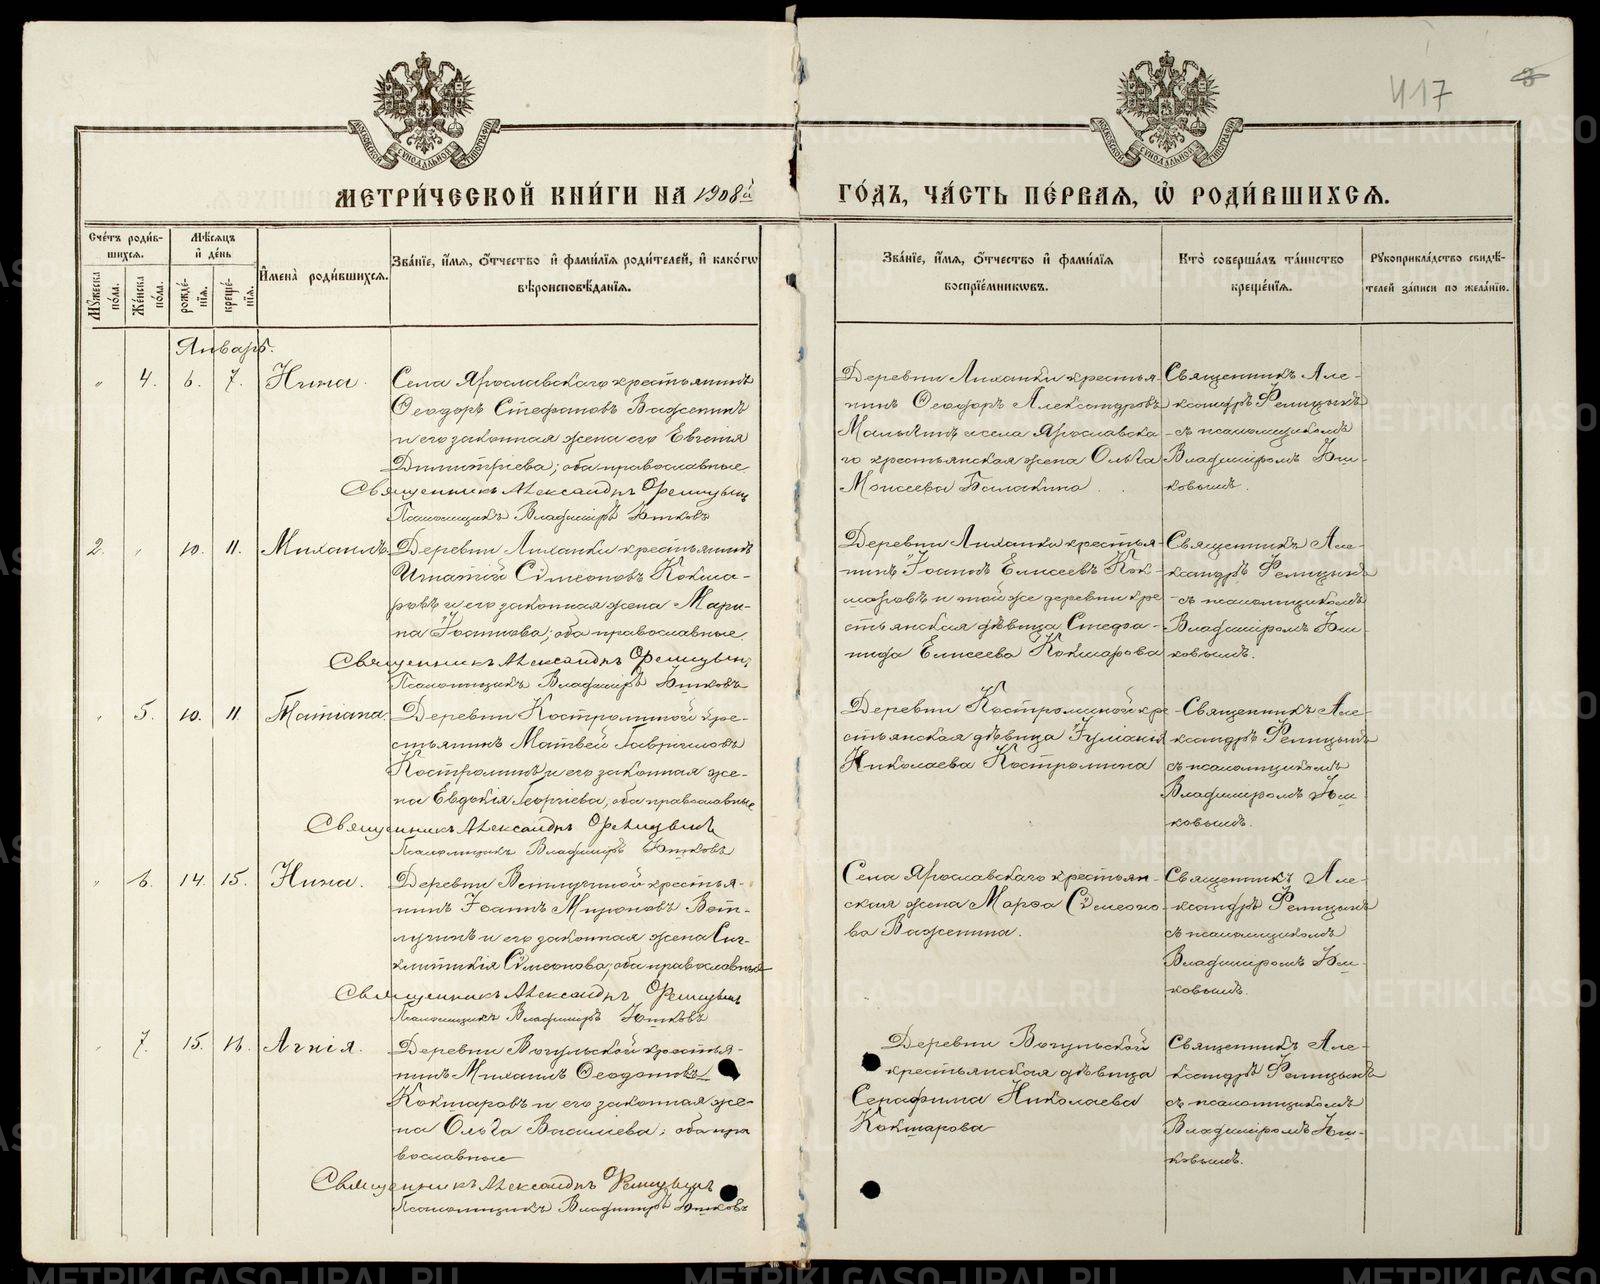 417
МЕТРИ́ЧЕСКОЙ КНИ́ГИ НА 1908й
ГО́ДЪ, ЧА́СТЬ ПЕ́РВАѦ, Ѡ҆ РОДИ́ВШИХСѦ.
Сче́тъ роди́в-
шихсѧ.
Мꙋ́жеска по́ла.
Же́нска по́ла.
Мѣ́сѧцъ
и҆ де́нь
рожде́-
нїѧ.
креще́-
нїѧ.
И҆мена̀ роди́вшихсѧ.
Зва́нїе, и҆́мѧ, ѻ҆́тчество и҆ фами́лїѧ роди́телей, и҆ како́гѡ
вѣроисповѣ́данїѧ.
Зва́нїе, и҆́мѧ, ѻ҆́тчество и҆ фами́лїѧ
воспрїе́мникѡвъ.
Кто̀ соверша́лъ та́инство
креще́нїѧ.
Рꙋкоприкла́дство свидѣ́-
телей за́писи по жела́нїю.
Январь.
" 4. 6. 7. Нина.
Села Ярославскаго крестьянинъ
Ѳеодоръ Стефановъ Важенинъ
и его законная жена его Евгенія
Димитріева; оба православные.
Священникъ Александръ
Псаломщикъ Владиміръ Юшковъ
Деревни Лиханки крестья-
нинъ Ѳеодоръ Александровъ
и села Ярославска-
го крестьянская жена Ольга
Моисеева Балакина.
Священникъ Але-
ксандръ
съ псаломщикомъ
Владиміромъ Юш-
ковымъ.
2. " 10. 11. Михаилъ.
Деревни Лиханки крестьянинъ
Игнатій Сѵмеоновъ Кокша-
ровъ и его законная жена Мари-
на Іоаннова; оба православные.
Священникъ Александръ
Псаломщикъ Владиміръ Юшковъ
Деревни Лиханки крестья-
нинъ Іоаннъ Елисеевъ Кок-
шаровъ и той же деревни кре-
стьянская дѣвица Стефа-
нида Елисеева Кокшарова
Священникъ Але-
ксандръ
съ псаломщикомъ
Владиміромъ Юш-
ковымъ.
" 5. 10. 11. Татіана.
Деревни Костроминой кре-
стьянинъ Матвей Гавріиловъ
Костроминъ и его законная же-
на Евдокія Георгіева, оба православные
Священникъ Александръ
Псаломщикъ Владиміръ Юшковъ
Деревни Костроминой кре-
стьянская дѣвица Іуліанія
Николаева Костромина
Священникъ Але-
ксандръ
съ псаломщикомъ
Владиміромъ Юш-
ковымъ.
" 6. 14. 15. Нина.
Деревни Ветлугиной крестья-
нинъ Іоаннъ Мироновъ Вет-
лугинъ и его законная жена Син-
клитикія Сѵмеонова; оба православные
Священникъ Александръ
Псаломщикъ Владиміръ Юшковъ
Села Ярославскаго крестьян-
ская жена Марѳа Сѵмеоно-
ва Важенина.
Священникъ Але-
ксандръ
съ псаломщикомъ
Владиміромъ Юш-
ковымъ.
" 7. 15. 16. Агнія.
Деревни Вогульской крестья-
нинъ Михаилъ Ѳеодотовъ
Кокшаровъ и его законная же-
на Ольга Василіева; оба пра
вославные
Священникъ Александръ
Псаломщикъ Владиміръ Юшковъ
Деревни Вогульской
крестьянская дѣвица
Серафима Николаева
Кокшарова
Священникъ Але-
ксандръ
съ псаломщикомъ
Владиміромъ Юш-
ковымъ.
METRIKI.GASO-URAL.RU